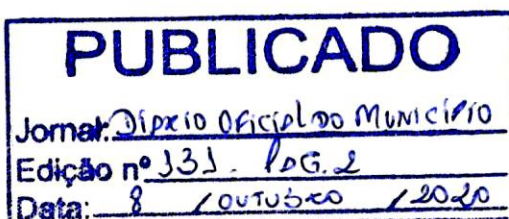 PUBLICADO
Jornal: Diário Oficial do Município
Edição nº 131. PÁG. 2
Data: 8 / OUTUBRO / 2020